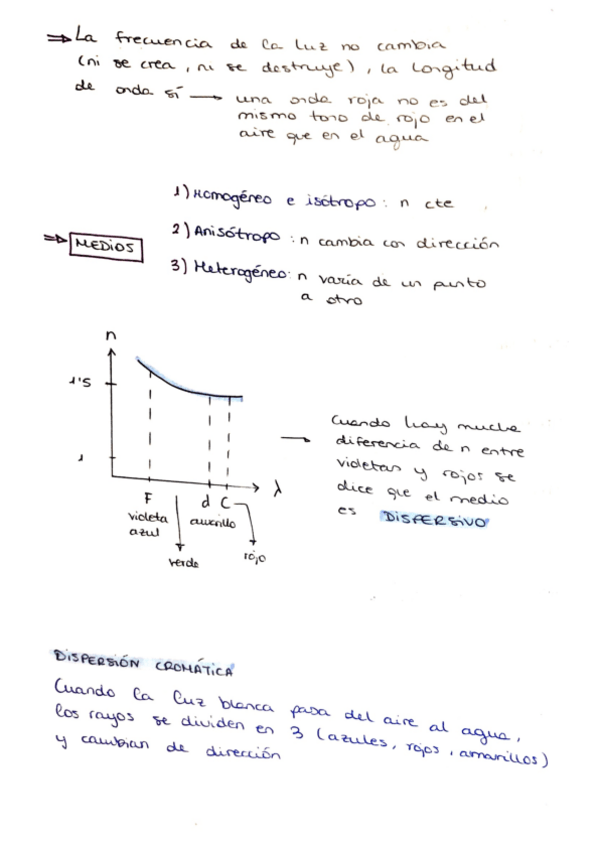 ⇒ La frecuencia de la luz no cambia
(ni se crea, ni se destruye), la longitud
de onda sí → una onda roja no es del
mismo tono de rojo en el
aire que en el agua
1) Homogéneo e isótropo: n cte
⇒ MEDIOS
2) Anisótropo: n cambia con dirección
3) Heterogéneo: n varía de un punto
a otro
n
1'5
1
λ
F d C
violeta amarillo
azul
verde
rojo
→ Cuando hay mucha
diferencia de n entre
violetas y rojos se
dice que el medio
es DISPERSIVO
DISPERSIÓN CROMÁTICA
Cuando la luz blanca pasa del aire al agua,
los rayos se dividen en 3 (azules, rojos, amarillos)
y cambian de dirección